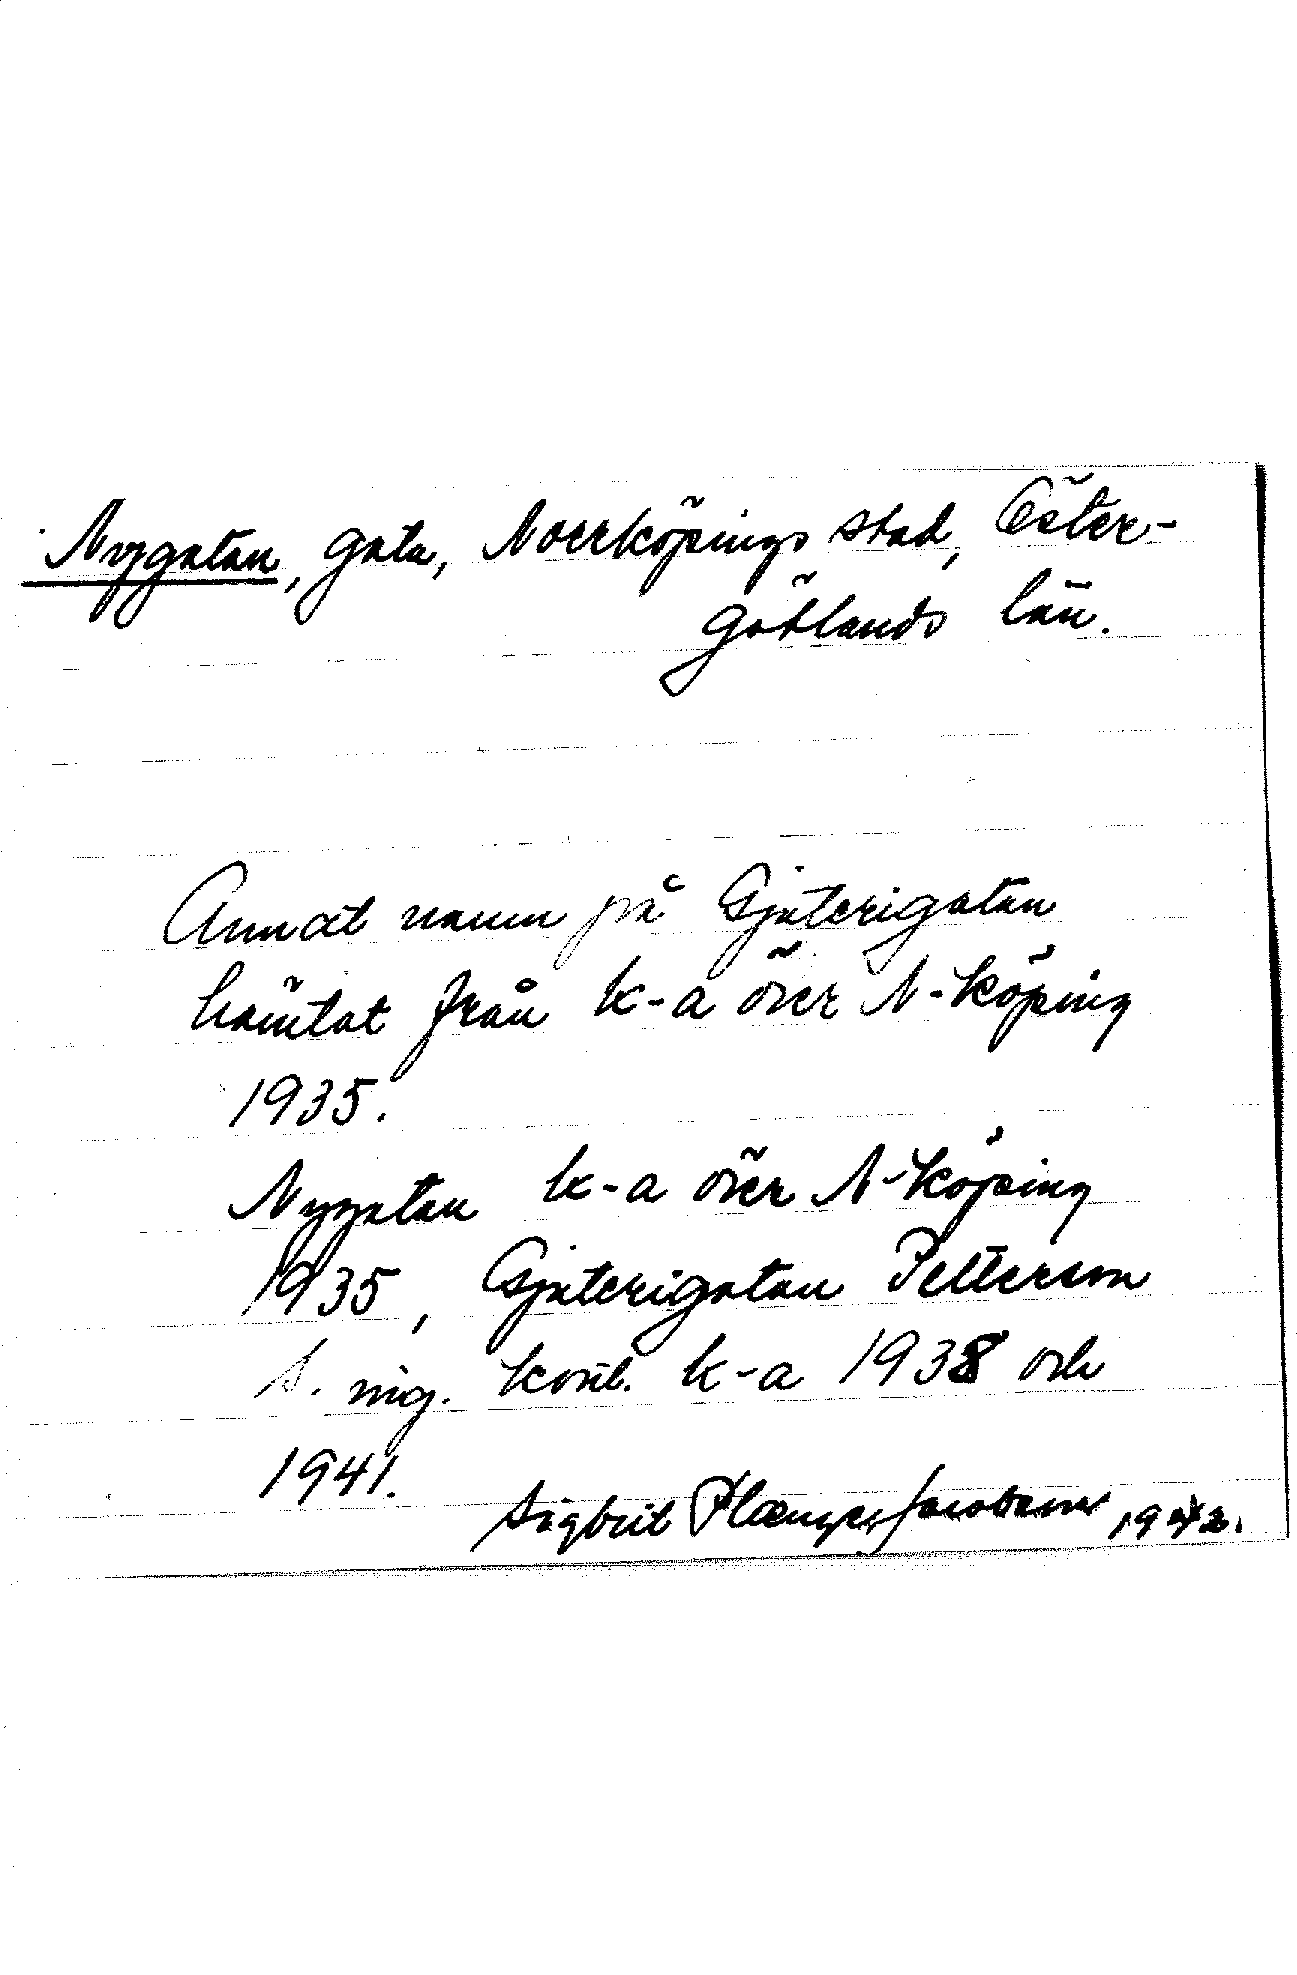 Nygatan, gata, Norrköpings stad, Öster-
götlands län.
Annat namn på Gjuterigatan
hämtat från k-a över N-köping
1935.
Nygatan k-a över N-köping
1935, Gjuterigatan Petterson
s. ing. k-a 1938 och
1941.
Sigbrit Plænge Jacobson 1942.